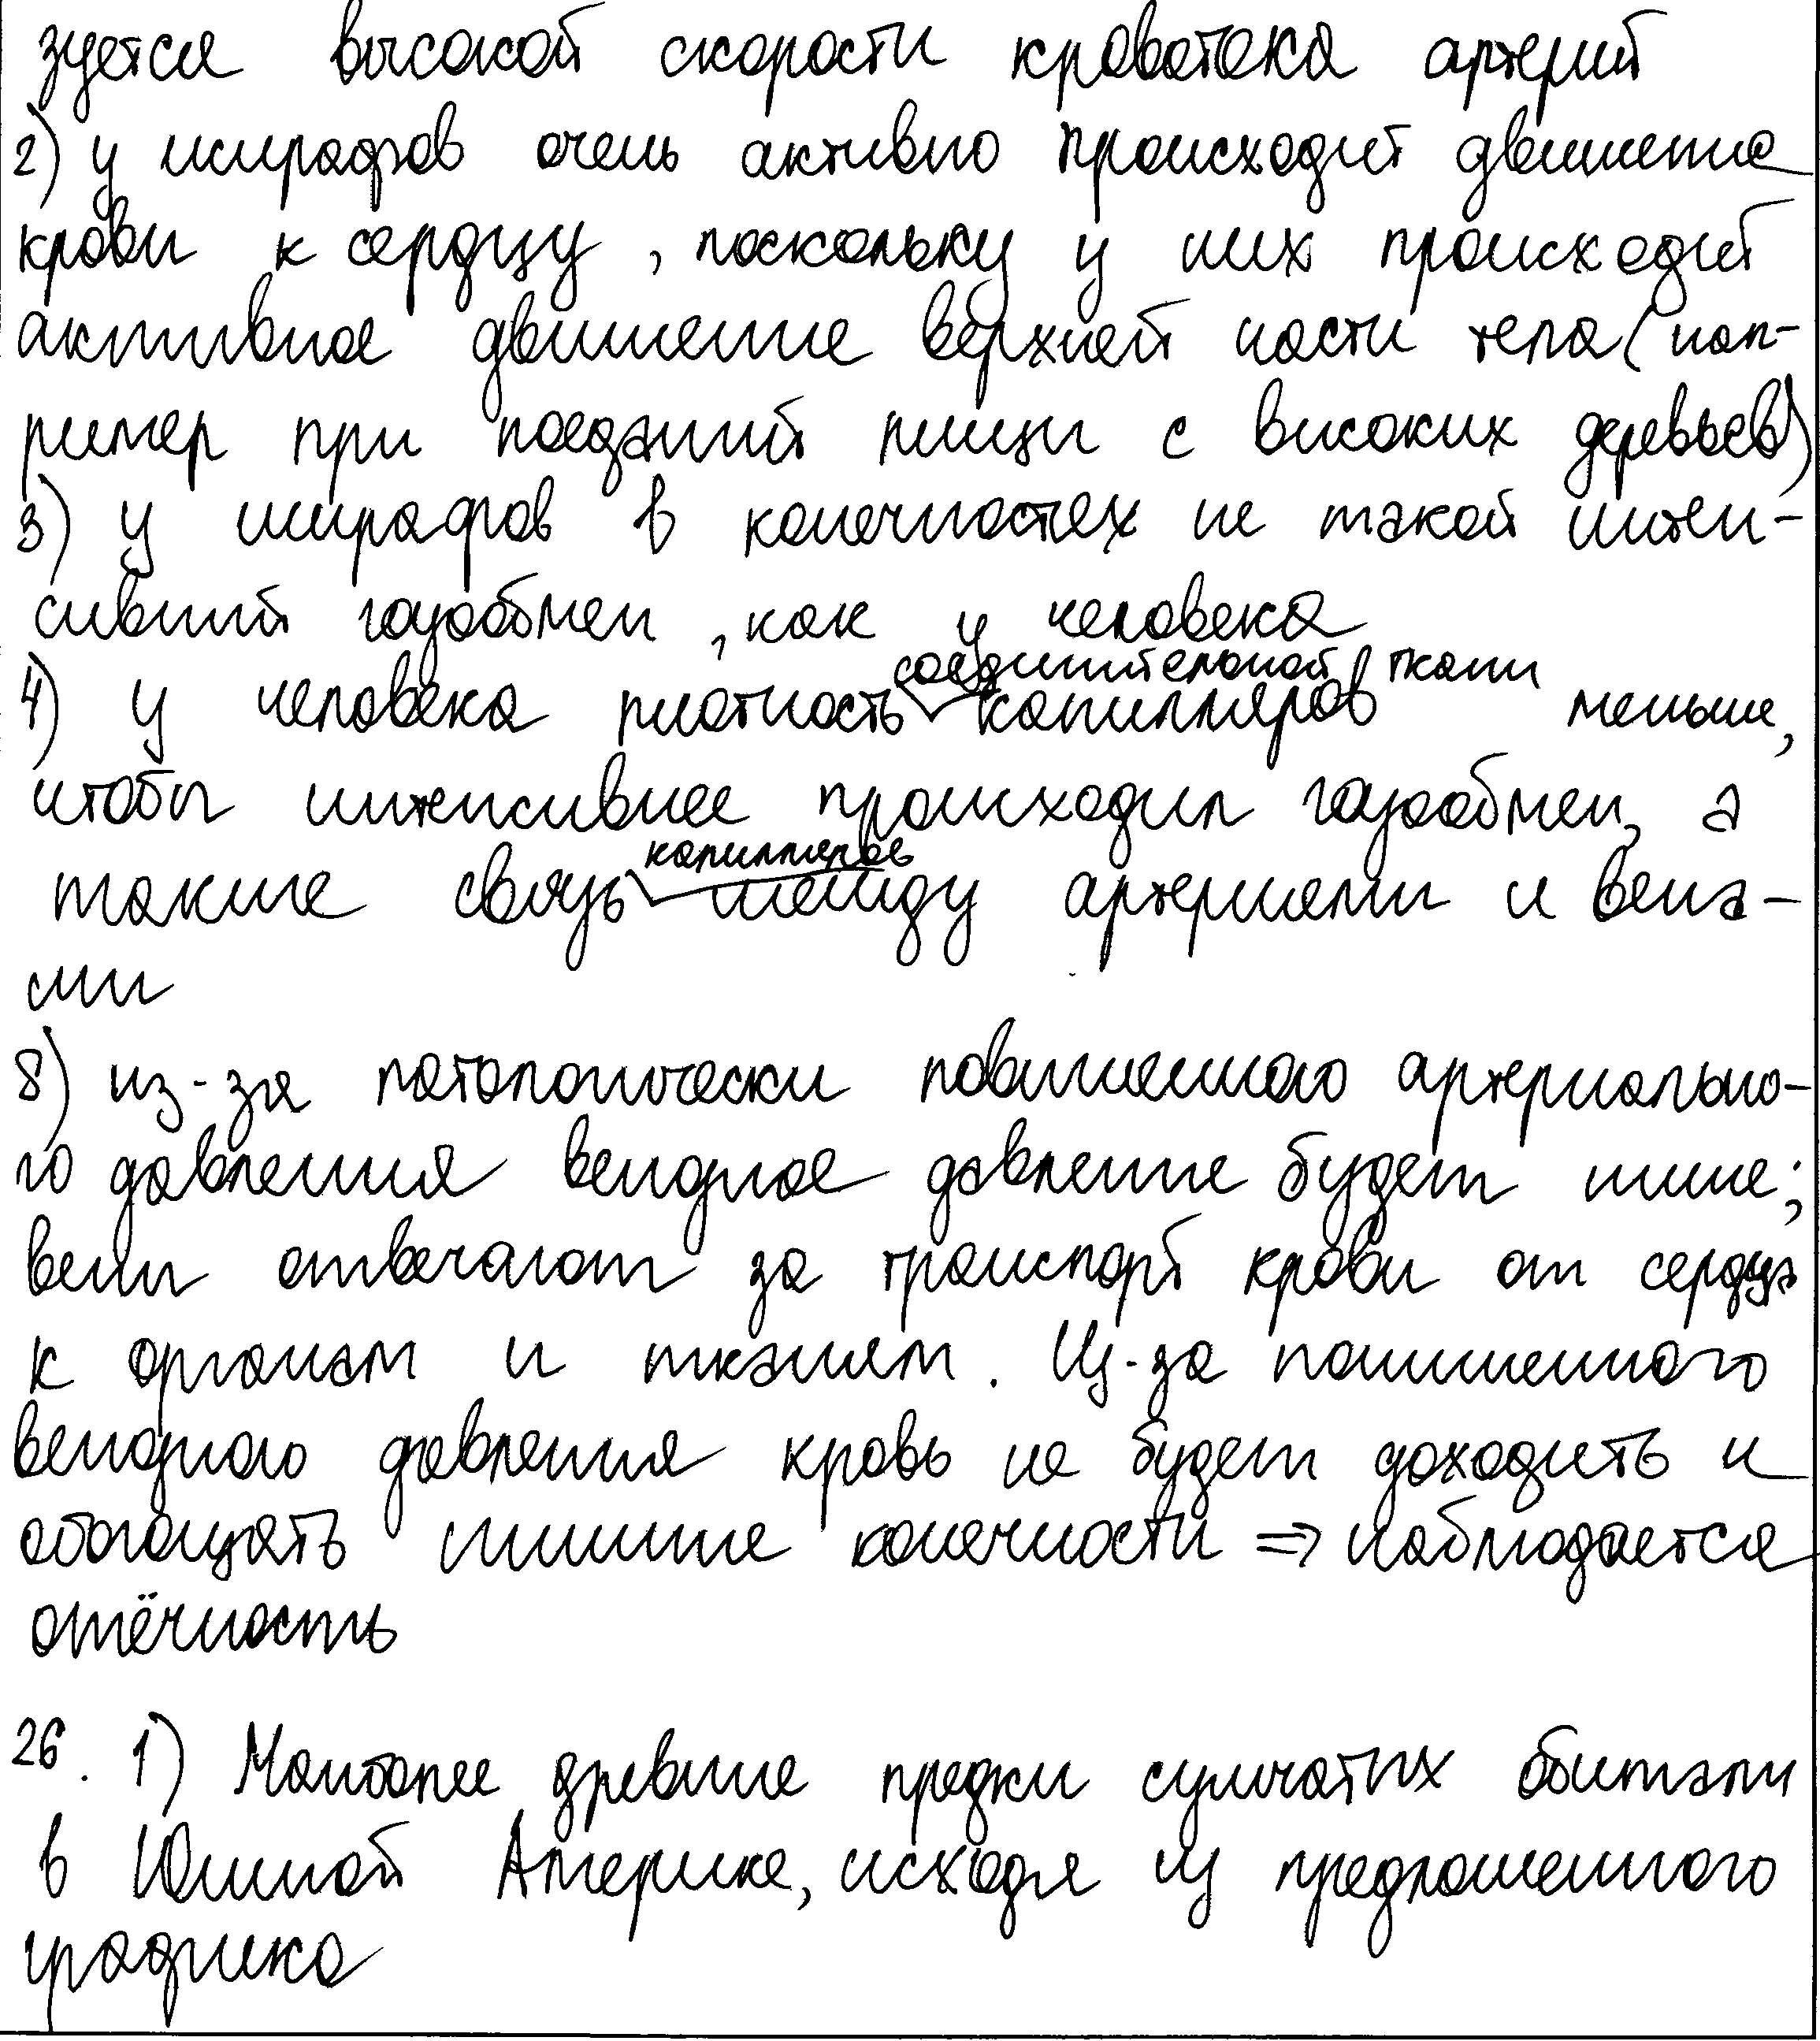 зуется высокой скорости кровотока артерий
2) у жирафов очень активно происходит движение
крови к сердцу, поскольку у них происходит
активное движение верхней части тела (нап-
ример при поедании пищи с высоких деревьев)
3) у жирафов в конечностях не такой интен-
сивний газообмен, как у человека
4) у человека плотность соединительной ткани капилляров меньше,
чтобы интенсивнее происходил газообмен, а
также связь капилляров между артериями и вена-
ми
8) из-за патологически повышенного артериально-
го давления венодное давление будет ниже;
вены отвечают за транспорт крови от сердца
к органам и тканям. Из-за пониженного
венодного давления кровь не будет доходить и
обогащать нижние конечности ⇒ наблюдается
отёчность
26. 1) Наиболее древние предки сумчатых обитали
в Южной Америке, исходя из предложенного
градика